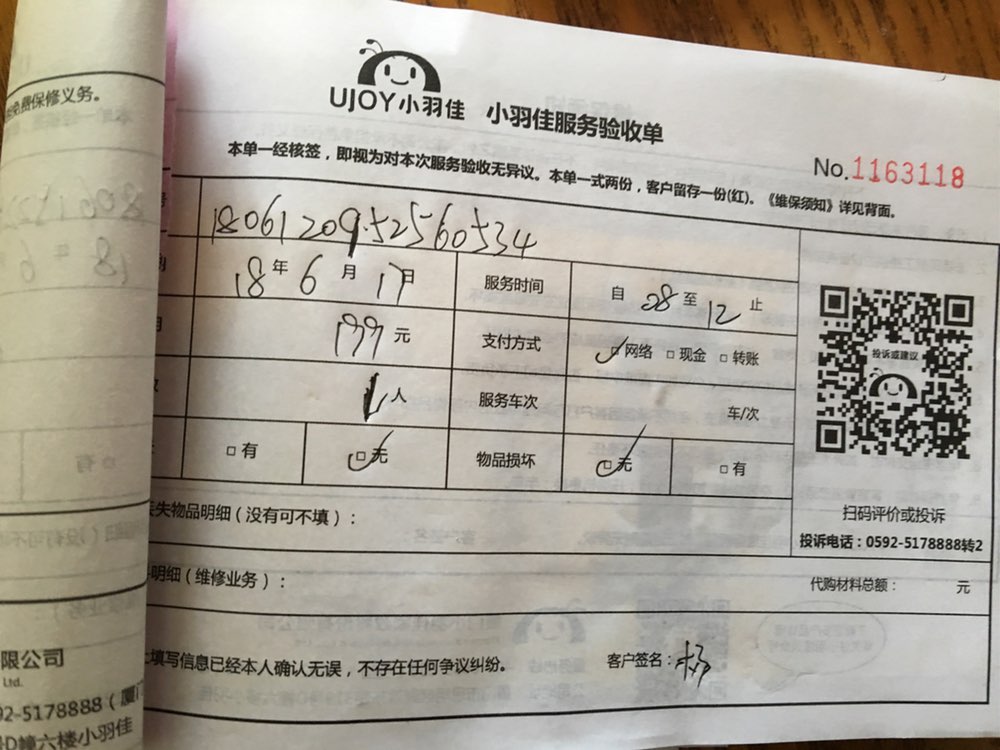 UJOY小羽佳 小羽佳服务验收单
本单一经核签，即视为对本次服务验收无异议。本单一式两份，客户留存一份(红)。《维保须知》详见背面。
No.1163118
号 1806120952560534
18年6月17日 服务时间 自08至12止
199元 支付方式 ☑网络 □现金 □转账
1人 服务车次 车/次
□有 ☑无 物品损坏 ☑无 □有
失物品明细（没有可不填）：
明细（维修业务）： 代购材料总额： 元
填写信息已经本人确认无误，不存在任何争议纠纷。 客户签名：杨
投诉或建议
扫码评价或投诉
投诉电话：0592-5178888转2
免费保修义务。
限公司
Ltd.
92-5178888（厦门
D幢六楼小羽佳